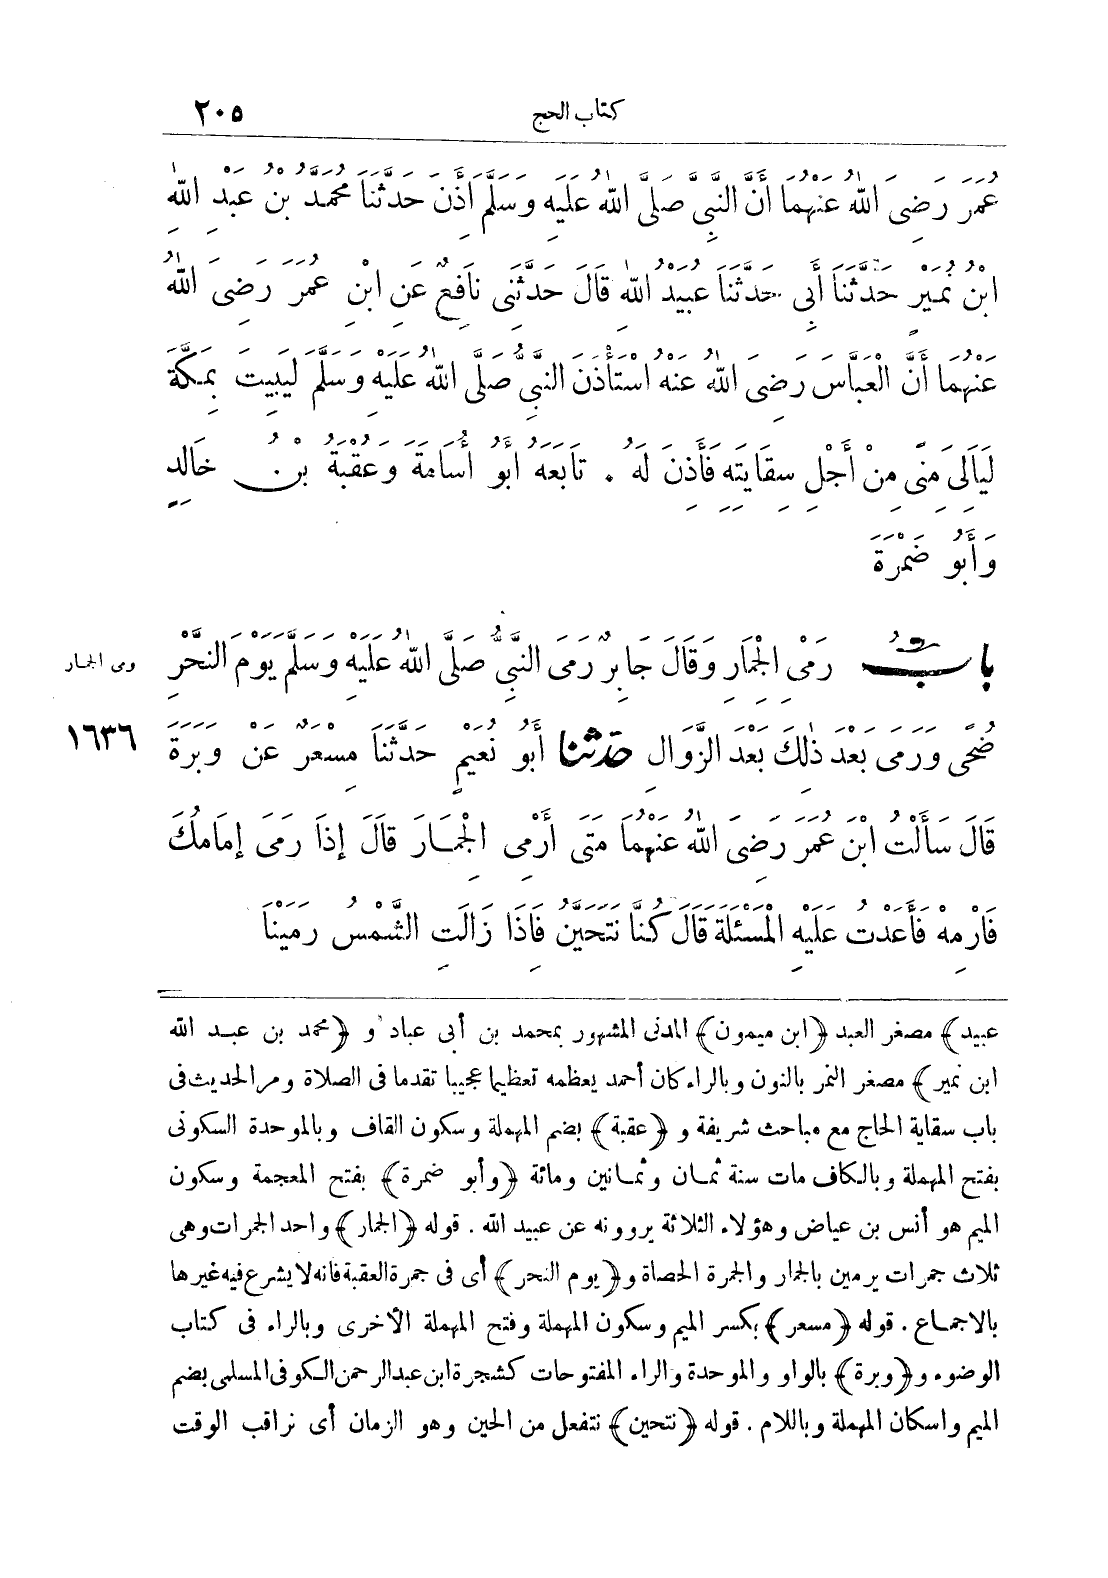 كتاب الحج
٢٠٥
عُمَرَ رَضِىَ اللهُ عَنْهُمَا أَنَّ النَّبِىَّ صَلَّى اللهُ عَلَيْهِ وَسَلَّمَ أَذِنَ حَدَّثَنَا مُحَمَّدُ بْنُ عَبْدِ اللهِ
ابْنُ نُمَيْرٍ حَدَّثَنَا أَبِى حَدَّثَنَا عُبَيْدُ اللهِ قَالَ حَدَّثَنِى نَافِعٌ عَنِ ابْنِ عُمَرَ رَضِىَ اللهُ
عَنْهُمَا أَنَّ الْعَبَّاسَ رَضِىَ اللهُ عَنْهُ اسْتَأْذَنَ النَّبِىَّ صَلَّى اللهُ عَلَيْهِ وَسَلَّمَ لِيَبِيتَ بِمَكَّةَ
لَيَالِىَ مِنًى مِنْ أَجْلِ سِقَايَتِهِ فَأَذِنَ لَهُ . تَابَعَهُ أَبُو أُسَامَةَ وَعُقْبَةُ بْنُ خَالِدٍ
وَأَبُو ضَمْرَةَ
بابُ رَمْىِ الْجِمَارِ وَقَالَ جَابِرٌ رَمَى النَّبِىُّ صَلَّى اللهُ عَلَيْهِ وَسَلَّمَ يَوْمَ النَّحْرِ
رمى الجمار
ضُحًى وَرَمَى بَعْدَ ذٰلِكَ بَعْدَ الزَّوَالِ حدثنا أَبُو نُعَيْمٍ حَدَّثَنَا مِسْعَرٌ عَنْ وَبَرَةَ
١٦٣٦
قَالَ سَأَلْتُ ابْنَ عُمَرَ رَضِىَ اللهُ عَنْهُمَا مَتَى أَرْمِى الْجِمَارَ قَالَ إِذَا رَمَى إِمَامُكَ
فَارْمِهْ فَأَعَدْتُ عَلَيْهِ الْمَسْئَلَةَ قَالَ كُنَّا نَتَحَيَّنُ فَاذَا زَالَتِ الشَّمْسُ رَمَيْنَا
عبيد﴾ مصغر العبد ﴿ابن ميمون﴾ المدنى المشهور بمحمد بن أبى عباد و ﴿محمد بن عبد الله
ابن نمير﴾ مصغر النمر بالنون وبالراء كان أحمد يعظمه تعظيما عجيبا تقدما فى الصلاة ومر الحديث فى
باب سقاية الحاج مع مباحث شريفة و ﴿عقبة﴾ بضم المهملة وسكون القاف وبالموحدة السكونى
بفتح المهملة وبالكاف مات سنة ثمان وثمانين ومائة ﴿وأبو ضمرة﴾ بفتح المعجمة وسكون
الميم هو أنس بن عياض وهؤلاء الثلاثة يروونه عن عبيد الله . قوله ﴿الجمار﴾ واحد الجمرات وهى
ثلاث جمرات يرمين بالجمار والجمرة الحصاة و﴿يوم النحر﴾ أى فى جمرة العقبة فانه لا يشرع فيه غيرها
بالاجماع . قوله ﴿مسعر﴾ بكسر الميم وسكون المهملة وفتح المهملة الأخرى وبالراء فى كتاب
الوضوء و﴿وبرة﴾ بالواو والموحدة والراء المفتوحات كشجرة ابن عبد الرحمن الكوفى المسلمى بضم
الميم واسكان المهملة وباللام . قوله ﴿نتحين﴾ نتفعل من الحين وهو الزمان أى نراقب الوقت